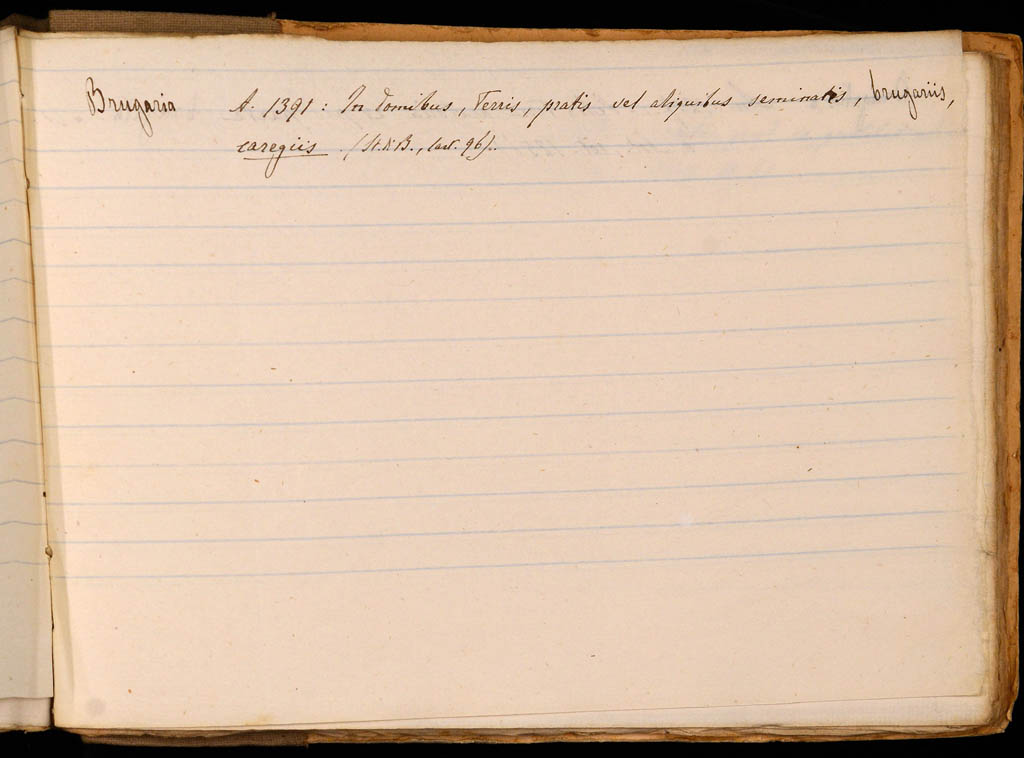 Brugaria A. 1391 : In domibus, terris, pratis vel aliquibus seminatis, brugariis,
caregiis. (St. di B., cart. 96).